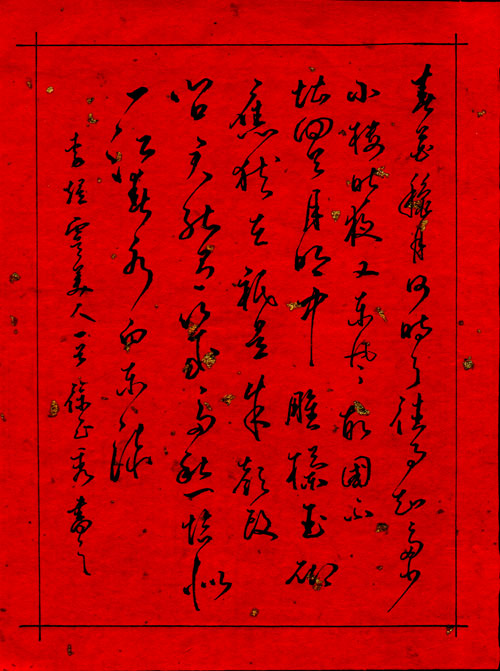 春花穐月何時了往事知多少
小樓昨夜又東風故國不
堪回首月明中雕欄玉砌
應猶在祇是朱顏改
問君能有幾多愁恰似
一江春水向東流
李煜虞美人一首徐正秀書之